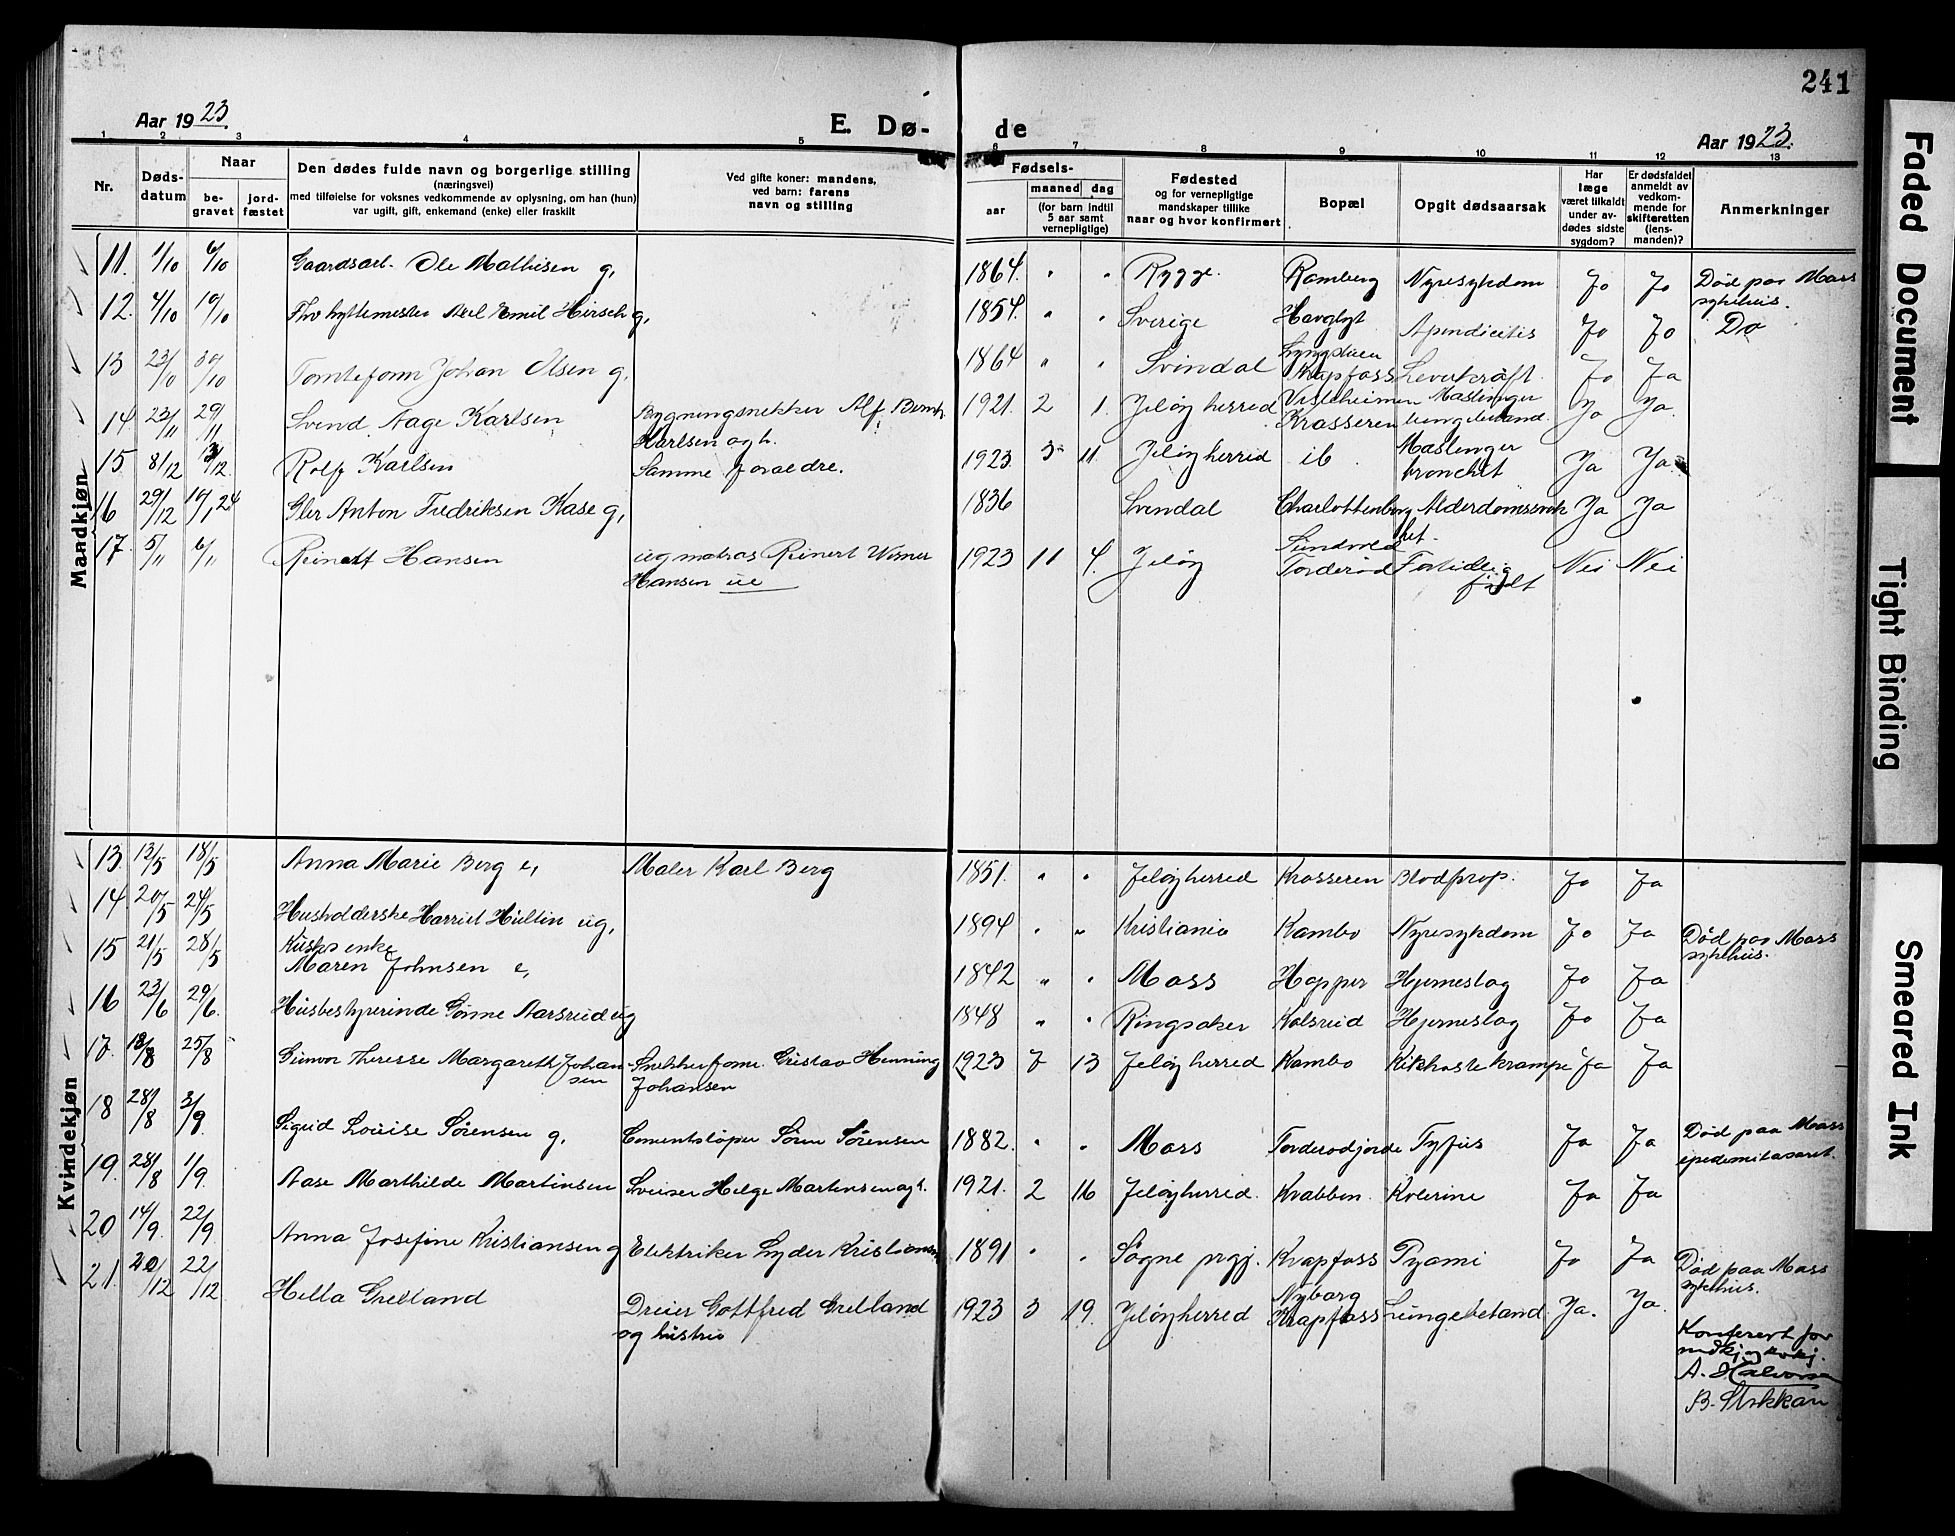 241
Aar 1923.
E. Dø-
de
Aar 1923.
1 2 3 4 5 6 7 8 9 10 11 12 13
Nr.
Døds-
datum
Naar
be-
gravet
jord-
fæstet
Den dødes fulde navn og borgerlige stilling
(næringsvei)
med tilføielse for voksnes vedkommende av oplysning, om han (hun)
var ugift, gift, enkemand (enke) eller fraskilt
Ved gifte koner: mandens,
ved barn: farens
navn og stilling
Fødsels-
aar
maaned
dag
(for barn indtil
5 aar samt
vernepligtige)
Fødested
og for vernepligtige
mandskaper tillike
naar og hvor konfirmert
Bopæl
Opgit dødsaarsak
Har
læge
været tilkaldt
under av-
dødes sidste
sygdom?
Er dødsfaldet
anmeldt av
vedkom-
mende for
skifteretten
(lens-
manden)?
Anmerkninger
Mandkjøn
11. 1/10 6/10 Gaardsarb. Ole Mathisen g, 1864. " " Rygge. Ramberg Nyresykdom Ja Ja Død paa Moss
sykehus.
12. 4/10 10/10 Fhv hyttemester Axel Emil Hirsch g, 1854. " " Sverige Havglytt Apendicitis Ja Ja Do
13 23/10 30/10 Tomteform Johan Olsen g, 1864 " " Svindal Lyngstuen
Krapfoss Leverkræft. Ja Ja
14 23/11 29/11 Svend Aage Karlsen Bygningsnekker Alf Bernh.
Karlsen og h. 1921. 2 1. Jeløy herred Vistheimen
Krasseren Meslinger
lungebetænd. Ja Ja.
15 8/12 13/12 Rolf Karlsen Samme forældre. 1923. 3 11 Jeløy herred ib Meslinger
bronchit Ja Ja.
16 29/12 10/1 24 Gler Anton Fredriksen Kase g, 1836 Svendal Charlottenborg Alderdomssvak
het. Ja Ja
17. 5/11 6/11 Reinert Hansen ug matros Reinert Werner
Hansen ue 1923 11 4. Jeløy Sundvold
Torderød Fortidlig
født Nei Nei
Kvindekjøn
13. 13/5 18/5 Anna Marie Berg e, Maler Karl Berg 1851. " " Jeløy herred Krosseren Blodprop. Ja Ja
14 20/5 24/5 Husholderske Harriet Hultin ug, 1894 " " Kristiania Kambo Nyresykdom Ja Ja Død paa Moss
sykehus.
15 21/5 28/5 Kusks enke
Maren Johnsen e, 1842 " " Moss Hopper Hjerneslag Ja Ja
16 23/6 29/6. Husbestyrerinde Gunne Aarsrud ug 1848 " " Ringsaker Kolsrud Hjerneslag Ja Ja
17. 18/8 25/8 Gunvor Theresse Margareth Johan
sen Snekkerform. Gustav Henning
Johansen 1923 7 13 Jeløy herred Kambo Kikhoste krampe Ja Ja
18 28/8 3/9. Sigrid Louise Sørensen g, Cementstøper Sören Sørensen 1882. " " Moss Torderødjorde Tyfus Ja Ja Død paa Moss
epedemilasaret.
19. 28/8 1/9. Aase Marthilde Martinsen Sveiser Helge Martinsen og h. 1921. 2 16 Jeløy herred. Krabben. Kolerine Ja Ja
20 14/9. 22/9. Anna Josefine Kristiansen g Elektriker Lyder Kristiansen 1891 " " Søgne prgj. Krapfoss Pyæmi Ja Ja Død paa Moss
sykehus.
21. 20/12 22/12 Hella Grelland Dreier Gottfred Grelland
og hustru 1923 3 19. Jeløy herred Nyborg
Krapfoss Lungebetænd Ja. Ja.
Konferert for
mdkj og kvkj.
A. Halvorsen
B. Stokkan
Faded Document
Tight Binding
Smeared Ink